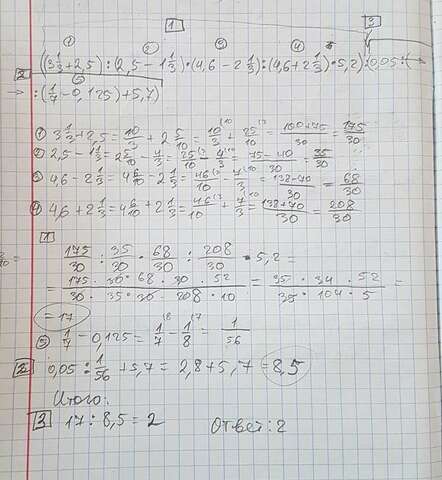 1 3
① ② ③ ④
2 (3 1/3 + 2,5) : (2,5 − 1 1/3) · (4,6 − 2 1/3) : (4,6 + 2 1/3) · 5,2) : 0,05 : (→
⑤
→ : (1/7 − 0,125) + 5,7)
① 3 1/3 + 2,5 = 10/3 + 2 5/10 = 10/3 + 25/10 = 100+75/30 = 175/30
② 2,5 − 1 1/3 = 2 5/10 − 1/3 = 25/10 − 4/3 = 75−40/30 = 35/30
③ 4,6 − 2 1/3 = 4 6/10 − 2 1/3 = 46/10 − 7/3 = 138−70/30 = 68/30
④ 4,6 + 2 1/3 = 4 6/10 + 2 1/3 = 46/10 + 7/3 = 138+70/30 = 208/30
1
175/30 : 35/30 · 68/30 : 208/30 · 5,2 =
= 175 · 30 · 68 · 30 · 52/30 · 35 · 30 · 208 · 10 = 35 · 34 · 52/35 · 104 · 5 =
= 17
⑤ 1/7 − 0,125 = 1/7 − 1/8 = 1/56
2 0,05 : 1/56 + 5,7 = 2,8 + 5,7 = 8,5
Итого:
3 17 : 8,5 = 2 Ответ: 2